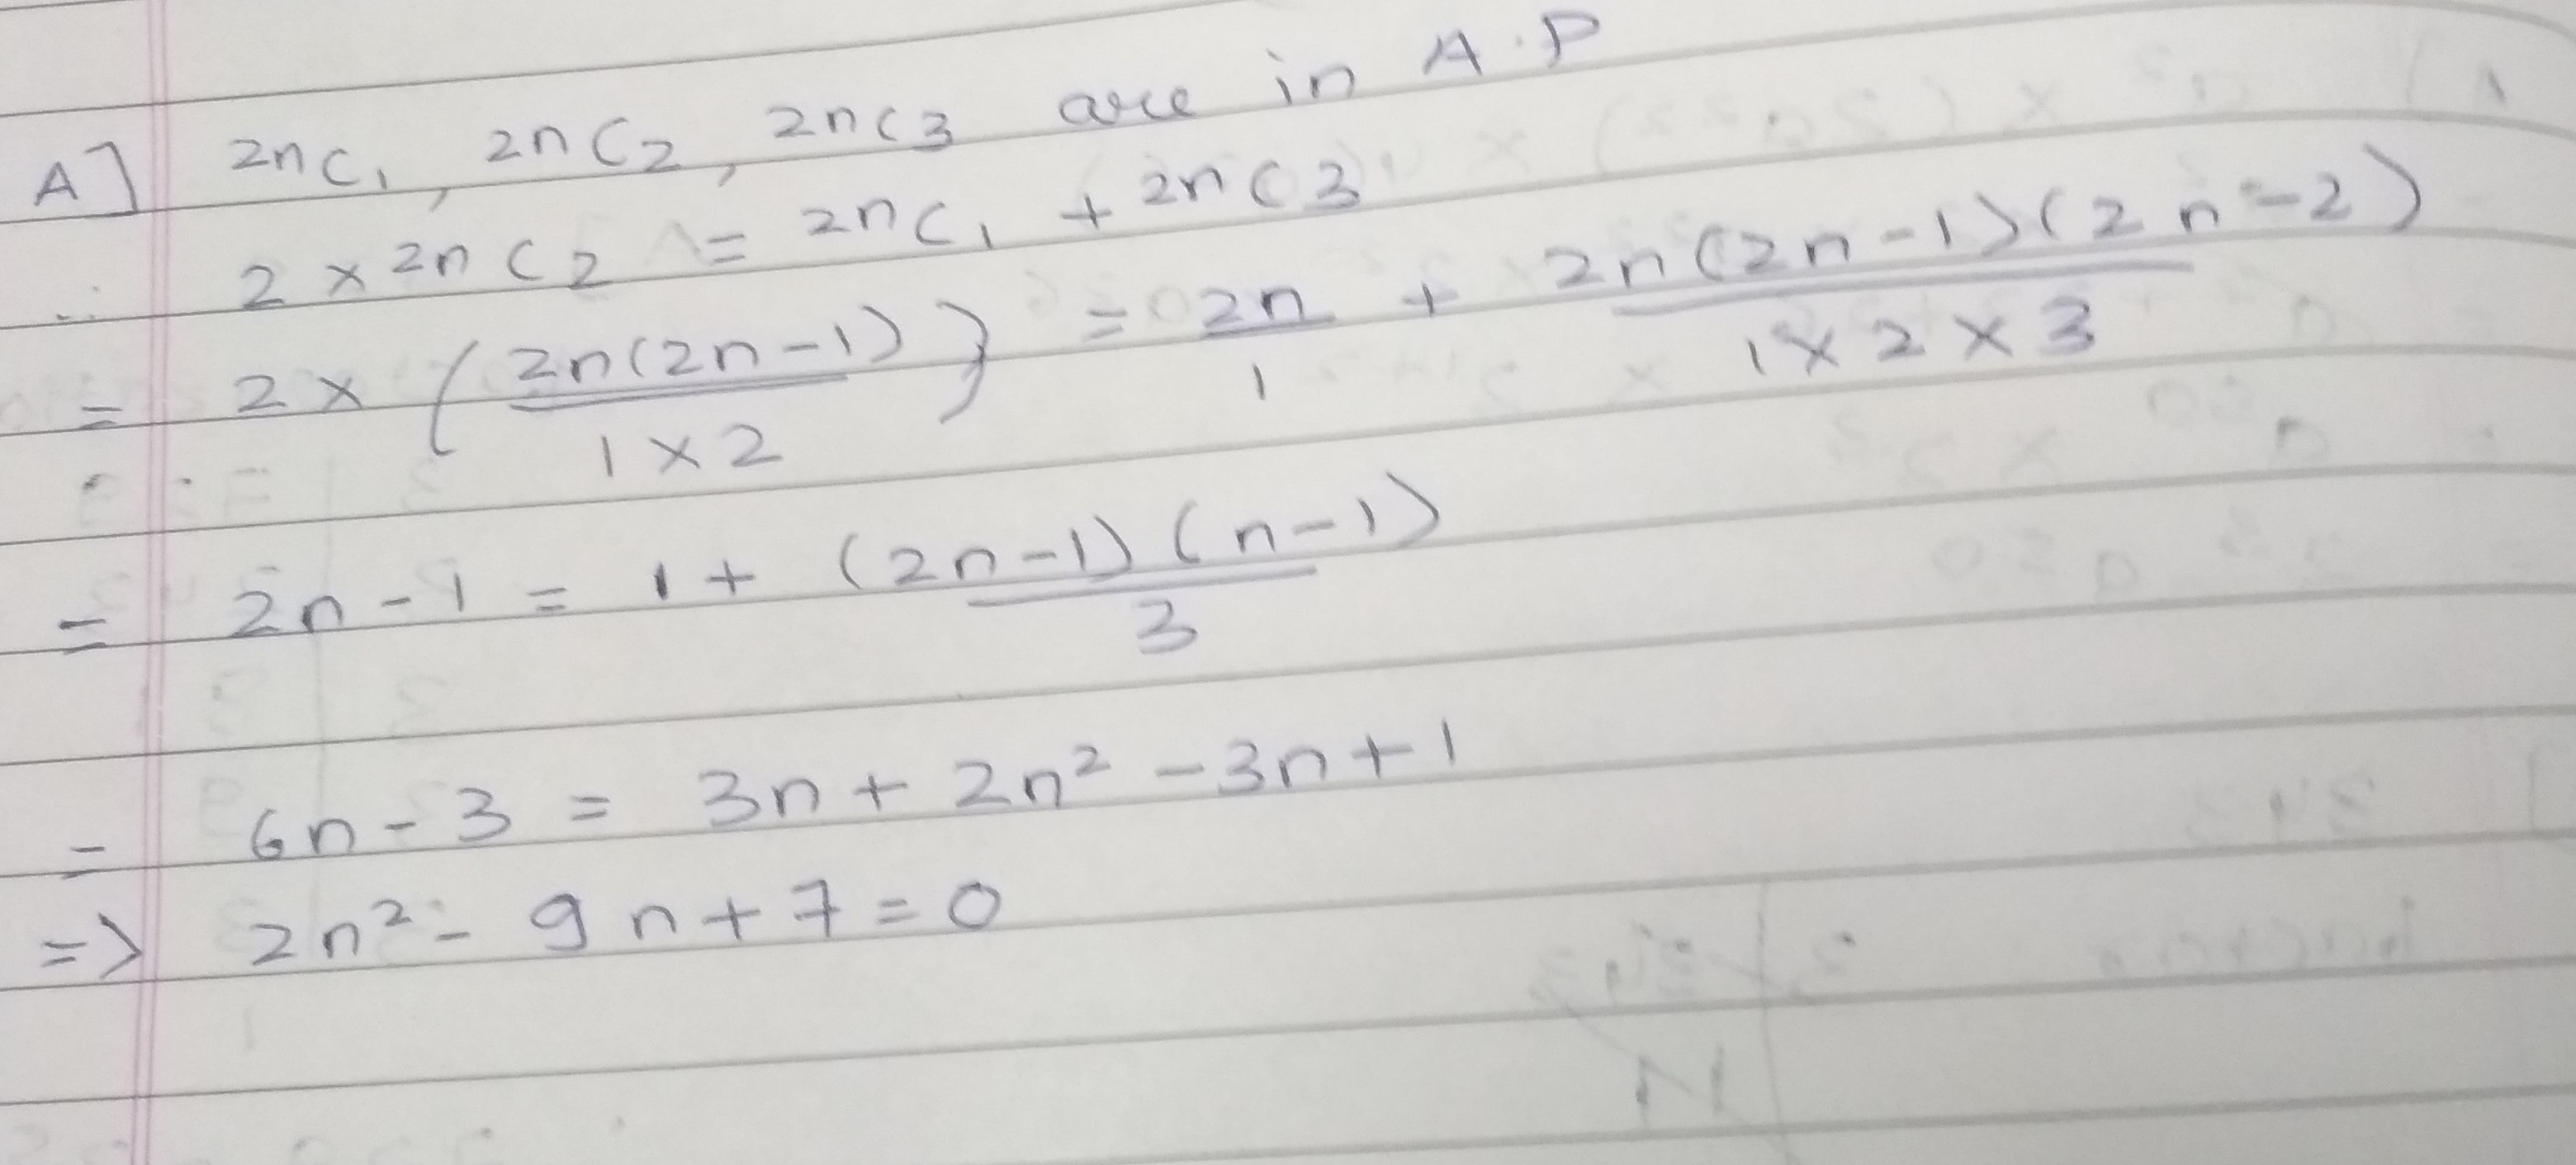 A] 2nC₁, 2nC₂, 2nC3 are in A.P
∴ 2 × 2nC₂ = 2nC₁ + 2nC3
= 2 × { 2n(2n-1) / 1×2 } = 2n/1 + 2n(2n-1)(2n-2) / 1×2×3
= 2n-1 = 1 + (2n-1)(n-1) / 3
= 6n-3 = 3n + 2n² - 3n + 1
=> 2n² - 9n + 7 = 0